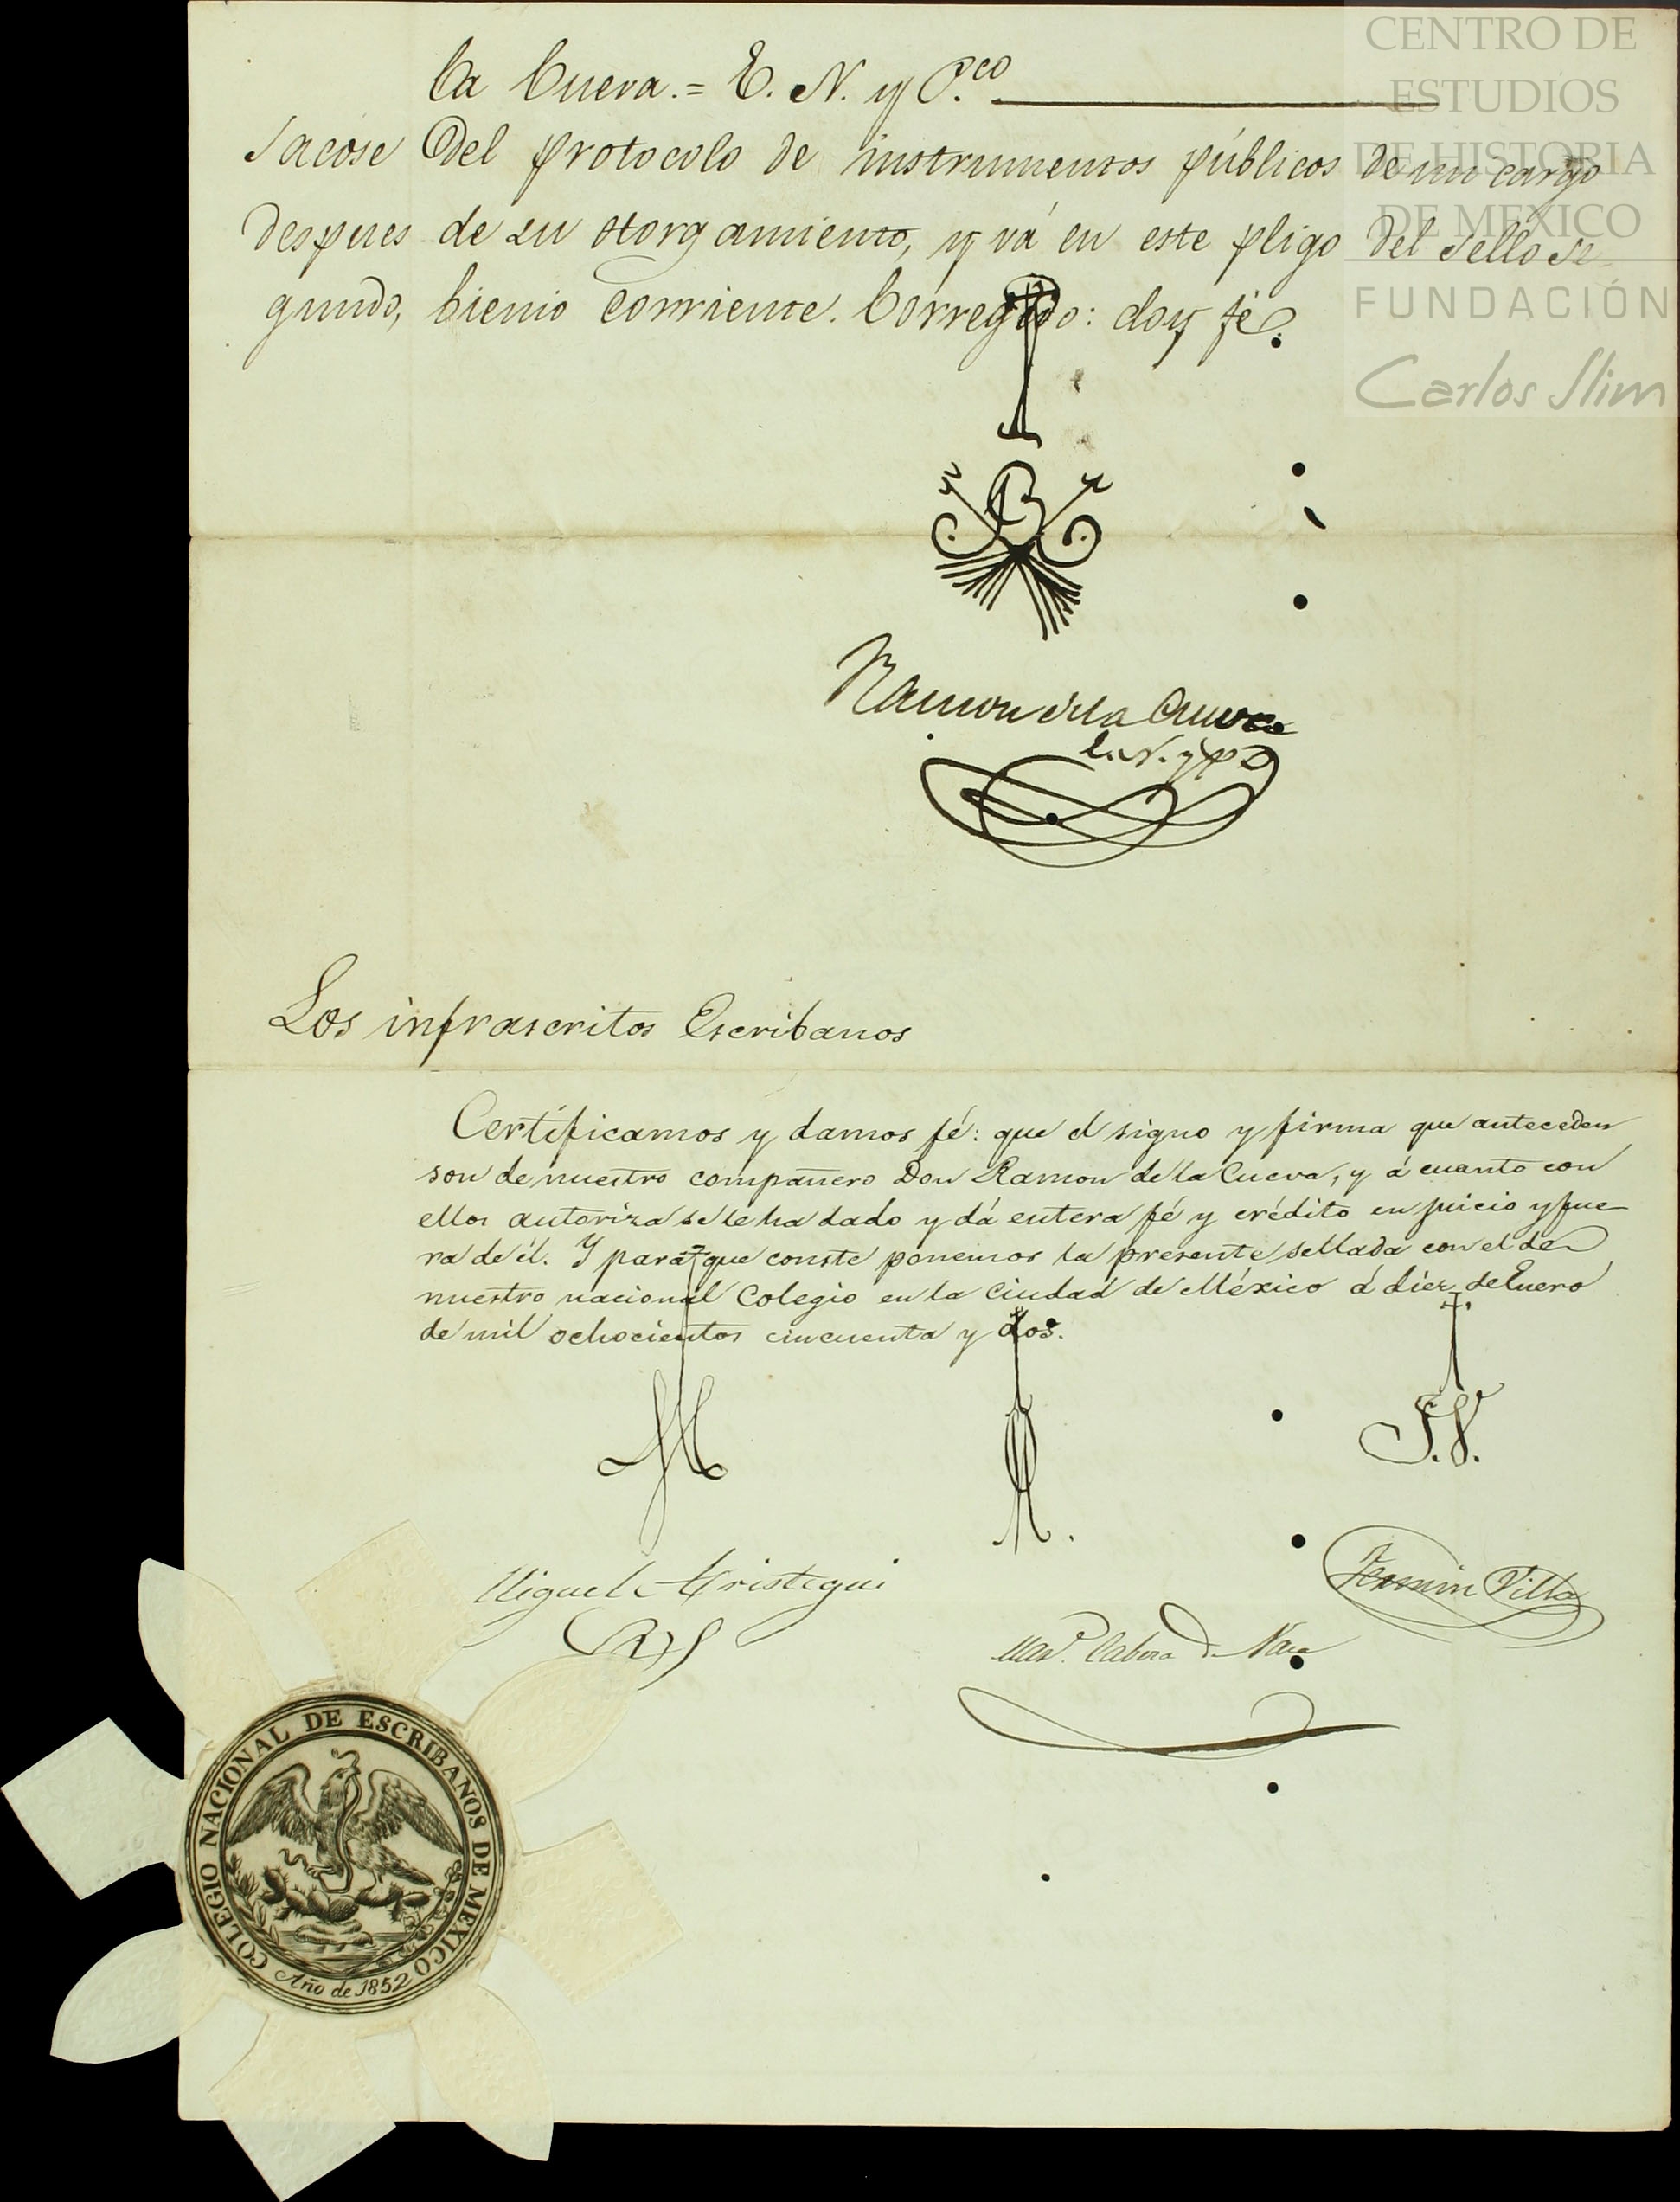 la Cueva. = E. N. y P.co
Sacóse del protocolo de instrumentos públicos de mi cargo
despues de su otorgamiento, y vá en este pligo del sello se
gundo, bienio corriente. Corregido: doy fé.
Ramon de la Cueva
E. N. y P
Los infrascritos Escribanos
Certificamos y damos fé: que el signo y firma que anteceden
son de nuestro compañero Don Ramon de la Cueva, y á cuanto con
ellos autoriza se le ha dado y dá entera fé y crédito en juicio y fue
ra de él. Y para que conste ponemos la presente sellada con el de
nuestro nacional Colegio en la Ciudad de México á diez de Enero
de mil ochocientos cincuenta y dos.
F. V.
Miguel Aristegui
Fermin Villa
Nava
COLEGIO NACIONAL DE ESCRIBANOS DE MEXICO
Año de 1852
CENTRO DE
ESTUDIOS
DE HISTORIA
DE MÉXICO
FUNDACIÓN
Carlos Slim